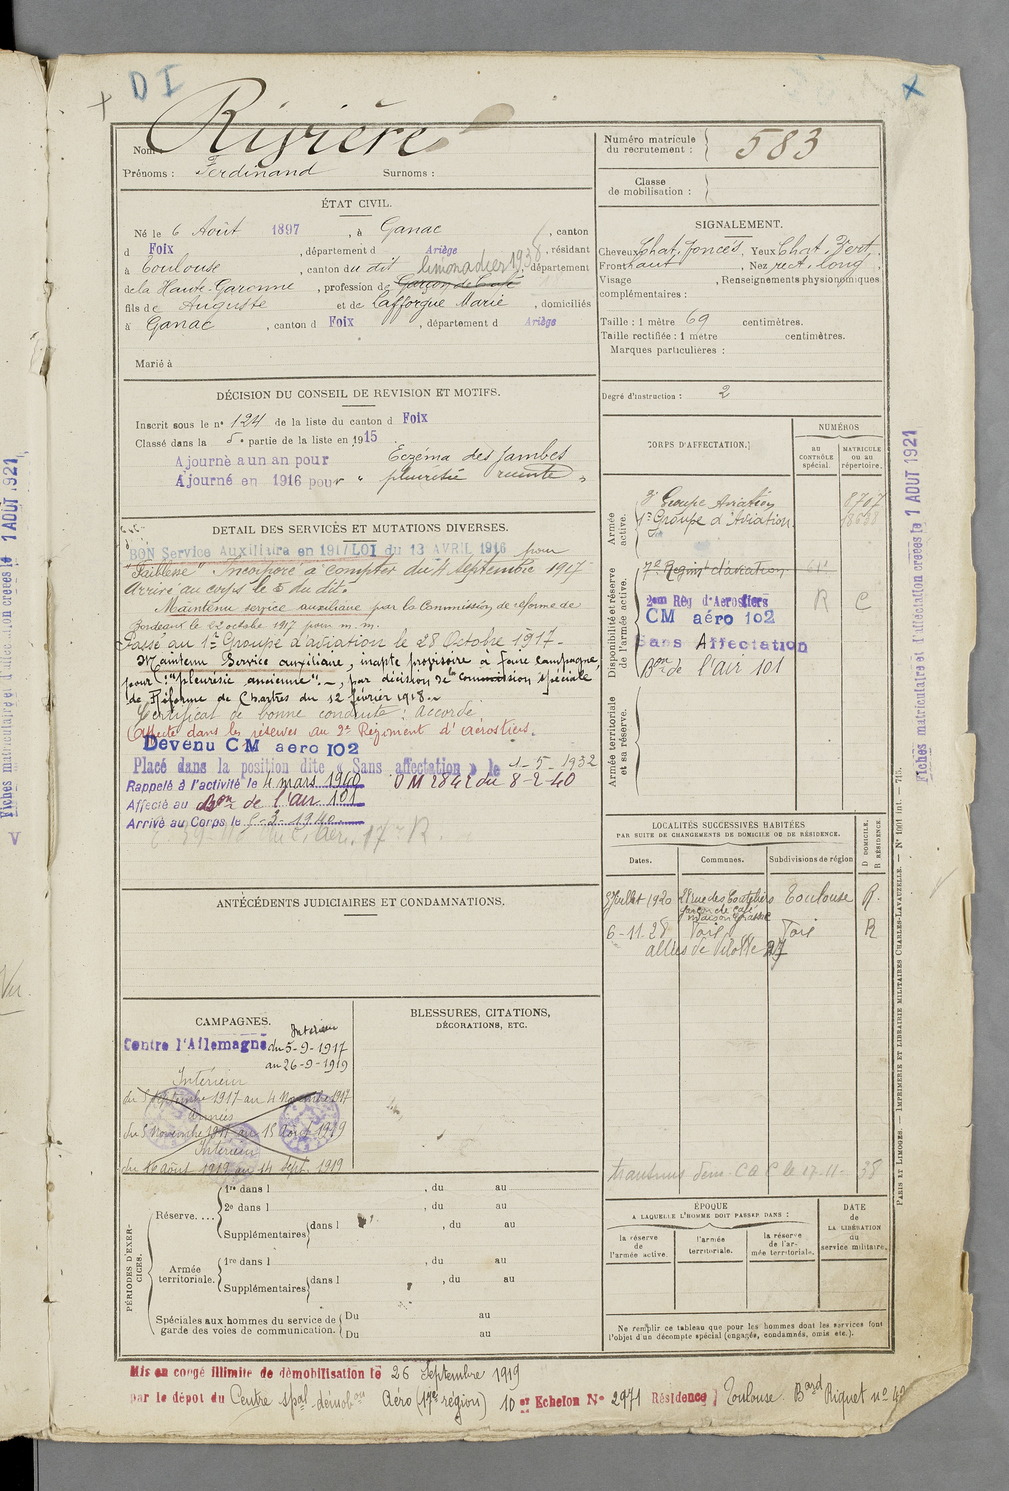 D I
Nom : Rivière
Prénoms : Ferdinand Surnoms :
Numéro matricule du recrutement : 583
Classe de mobilisation :
ÉTAT CIVIL.
Né le 6 Août 1897, à Ganac, canton
d Foix, département d Ariège, résidant
à Toulouse, canton du dit limonadier 1938, département
de la Haute-Garonne, profession de Garçon de Café
fils de Auguste et de Lafforgue Marie, domiciliés
à Ganac, canton d Foix, département d Ariège
Marié à
SIGNALEMENT.
Cheveux Chat. foncés, Yeux Chat. Vert,
Front haut, Nez rect. long,
Visage , Renseignements physionomiques
complémentaires :
Taille : 1 mètre 69 centimètres.
Taille rectifiée : 1 mètre centimètres.
Marques particulières :
Degré d'instruction : 2
DÉCISION DU CONSEIL DE REVISION ET MOTIFS.
Inscrit sous le n° 124 de la liste du canton d Foix
Classé dans la 5e partie de la liste en 1915
Ajourné a un an pour Eczema des jambes
Ajourné en 1916 pour " pleurésie récente "
DETAIL DES SERVICES ET MUTATIONS DIVERSES.
BON Service Auxiliaire en 1917 LOI du 13 AVRIL 1916 pour
"Faiblesse" Incorporé à compter du 4 septembre 1917
Arrivé au corps le 5 du dit.
Maintenu service auxiliaire par la Commission de réforme de
Bordeaux le 22 octobre 1917 pour m. m.
Passé au 1er Groupe d'aviation le 28 Octobre 1917.
Maintenu Service auxiliaire, inapte provisoire à faire campagne,
pour : "pleurésie ancienne". -, par décision de la commission spéciale
de Réforme de Chartres du 12 février 1918.-
Certificat de bonne conduite : Accordé
Affecté dans les réserves au 2e Régiment d'Aérostiers.
Devenu CM aero 102
Placé dans la position dite « Sans affectation » le 1-5-1932
Rappelé à l'activité le 4 mars 1940 DM 2842 du 8-2-40
Affecté au Bon de l'air 101
Arrivé au Corps le 5-3-1940
CORPS D'AFFECTATION.
NUMÉROS
AU CONTRÔLE spécial.
MATRICULE ou au répertoire.
Armée active.
3e Groupe Aviation 8707
1er Groupe d'Aviation
Disponibilité et réserve de l'armée active.
Regimt d'aviation
2em Rég d'Aerostiers R C
CM aéro 102
Sans Affectation
Bon de l'air 101
Armée territoriale et sa réserve.
LOCALITÉS SUCCESSIVES HABITÉES
PAR SUITE DE CHANGEMENTS DE DOMICILE OU DE RÉSIDENCE.
Dates. Communes. Subdivisions de région D DOMICILE. R RÉSIDENCE.
Juillet 1920 rue des Couteliers Toulouse R.
garçon de café
6-11-28 Foix Foix R
allées de Vilotte 27
transmis 17-11-38
ANTÉCÉDENTS JUDICIAIRES ET CONDAMNATIONS.
CAMPAGNES.
Contre l'Allemagne Intérieur
du 5-9-1917
au 26-9-1919
Intérieur
du 5 septembre 1917 au 4 Novembre 1917
Armées
du 5 Novembre 1917 au 15 Août 1919
Intérieur
du 16 août 1919 au 14 Sept. 1919
BLESSURES, CITATIONS,
DÉCORATIONS, ETC.
PÉRIODES D'EXERCICES.
Réserve....
1re dans l , du au
2e dans l , du au
Supplémentaires dans l , du au
Armée territoriale.
1re dans l , du au
Supplémentaires dans l , du au
Spéciales aux hommes du service de garde des voies de communication.
Du au
Du au
ÉPOQUE
A LAQUELLE L'HOMME DOIT PASSER DANS :
la réserve de l'armée active.
l'armée territoriale.
la réserve de l'armée territoriale.
DATE de LA LIBÉRATION du service militaire.
Ne remplir ce tableau que pour les hommes dont les services font
l'objet d'un décompte spécial (engagés, condamnés, omis etc.).
Mis en congé illimité de démobilisation le 26 Septembre 1919
par le dépôt du Centre spal démobon Aéro (17e région) 10 er Echelon N° 2971 Résidence Toulouse. Bard Riquet n°
PARIS ET LIMOGES. — IMPRIMERIE ET LIBRAIRIE MILITAIRES CHARLES-LAVAUZELLE. — N° 1001 int. — 715.
Fiches matriculaire et d'affectation créées le 1 AOUT 1921
Fiches matriculaire et d'affectation créées le 1 AOUT 1921